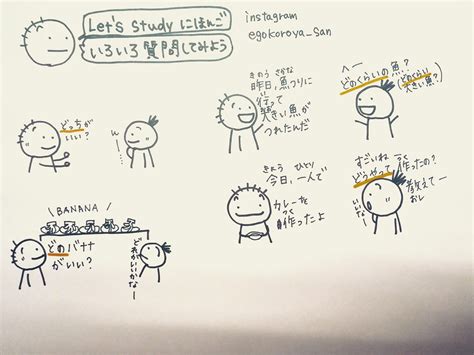 Let's study にほんご
いろいろ質問してみよう
instagram
egokoroya_san
どっちが
いい?
ん〜
きのう さかな
昨日、魚つりに
行って
大きい魚が
つれたんだ
へー
どのくらいの魚?
(どのくらい
大きい魚?)
\ BANANA /
どのバナナ
がいい?
どれがいいかなー
きょう ひとり
今日、一人で
カレーを
つく
作ったよ
すごいね
つく
どうやって作ったの?
教えてー
おし